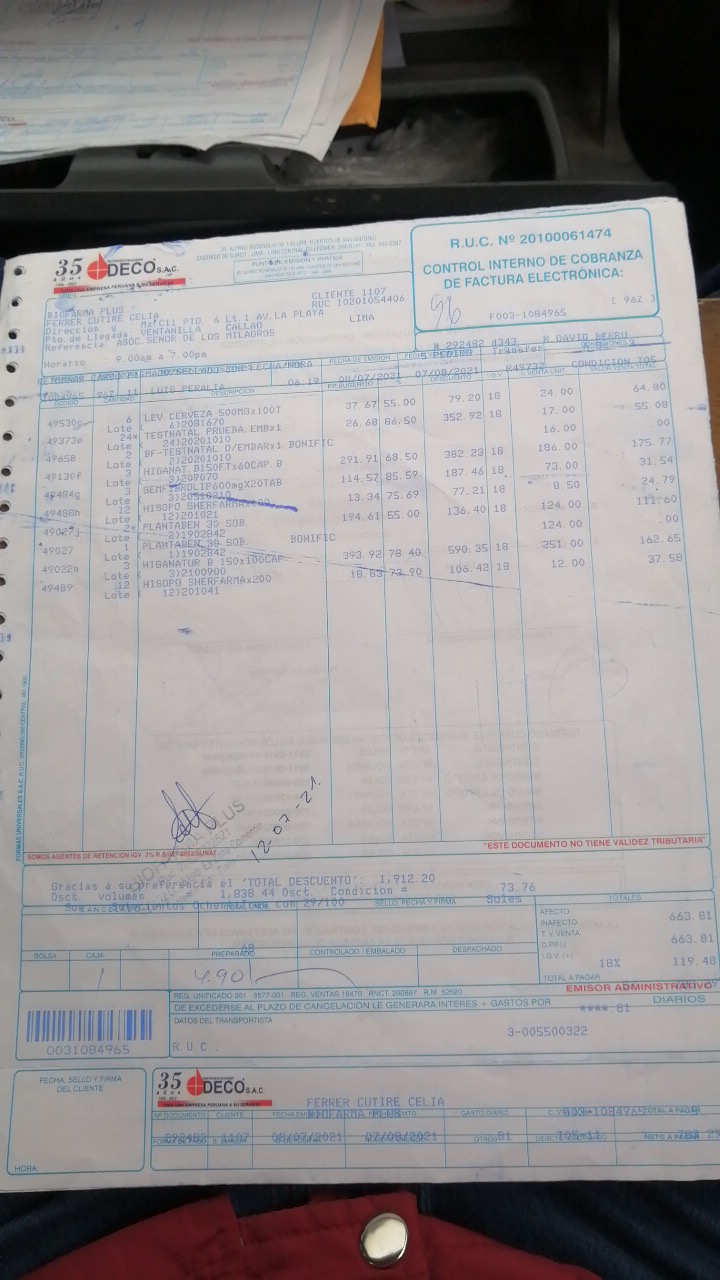 35
AÑOS
DECO S.A.C.
R.U.C. Nº 20100061474
CONTROL INTERNO DE COBRANZA
DE FACTURA ELECTRÓNICA:
96
F003-1084965 [ 962 ]
CLIENTE 1107
RUC 10201054406
BIOFARMA PLUS
FERRER CUTIRE CELIA
Direccion y Mz/Cll PTO 6 Lt.1 AV.LA PLAYA LIMA
Pto.de Llegada: VENTANILLA CALLAO
Referencia: ASOC.SENOR DE LOS MILAGROS
Horario 9.00am a 7.00pm
# 292482 d343 R DAVID BERRU
PEDIDO Transfer
FECHA DE EMISIÓN
06.19 08/07/2021 07/08/2021 R49732 CONDICION T05
LUIS PERALTA
CODIGO CANTIDAD DESCRIPCION PP.SUGERIDO % DESCUENTO I.G.V. V.VENTA UNIT. VALOR VENTA TOTAL
6 LEV.CERVEZA 500MGx100T 37.67 55.00 79.20 18 24.00 64.80
Lote ( 6)2081670
49373e 24* TESTNATAL PRUEBA.EMBx1 26.68 86.50 352.92 18 17.00 55.08
Lote ( 24)20201010
49658 2 BF-TESTNATAL D/EMBARx1 BONIFIC 16.00 .00
Lote ( 2)20201010
49130f 3 HIGANAT.B150FTx60CAP.B 291.91 68.50 382.23 18 186.00 175.77
Lote ( 3)209070
49484g 3 GEMFIBROLIP600mgX20TAB 114.57 85.59 187.46 18 73.00 31.54
Lote
49488h 12 HISOPO SHERFARMAx100 13.34 75.69 77.21 18 8.50 24.79
Lote ( 12)201021
49027j 2* PLANTABEN 30 SOB 194.61 55.00 136.40 18 124.00 111.60
Lote ( 2)1902842
49027 1 PLANTABEN 30 SOB BONIFIC 124.00 .00
Lote ( 1)1902842
49022n 3 HIGANATUR B 150x100CAP 393.92 78.40 590.35 18 251.00 162.65
Lote ( 3)2100900
49489 12 HISOPO SHERFARMAx200 18.83 73.90 106.42 18 12.00 37.58
Lote ( 12)201041
12-07-21
SOMOS AGENTES DE RETENCION IGV 3% R.S/037-2002/SUNAT
"ESTE DOCUMENTO NO TIENE VALIDEZ TRIBUTARIA"
Gracias a su preferencia el 'TOTAL DESCUENTO': 1,912.20
Dsct. volumen 1,838.44 Dsct. Condicion = 73.76
con 29/100 Soles
SELLO, FECHA Y FIRMA
TOTALES
AFECTO 663.81
INAFECTO
T.V.VENTA 663.81
D.PP(-)
I.G.V. (+) 18% 119.48
TOTAL A PAGAR
BOLSA CAJA PREPARADO CONTROLADO / EMBALADO DESPACHADO
1 4.90
EMISOR ADMINISTRATIVO
REG. UNIFICADO 951 - 8577-001 REG. VENTAS 18470 RNCT 290887 R.M. 52520
DE EXCEDERSE AL PLAZO DE CANCELACIÓN LE GENERARA INTERES + GASTOS POR ****.81 DIARIOS
DATOS DEL TRANSPORTISTA
3-005500322
R.U.C.
0031084965
FECHA, SELLO Y FIRMA
DEL CLIENTE
HORA:
35
AÑOS
DECO S.A.C.
FERRER CUTIRE CELIA
BIOFARMA PLUS
Nº DOCUMENTO CLIENTE GASTO DIARIO TOTAL A PAGAR
292482 1107 08/07/2021 07/08/2021 .81 T05-11